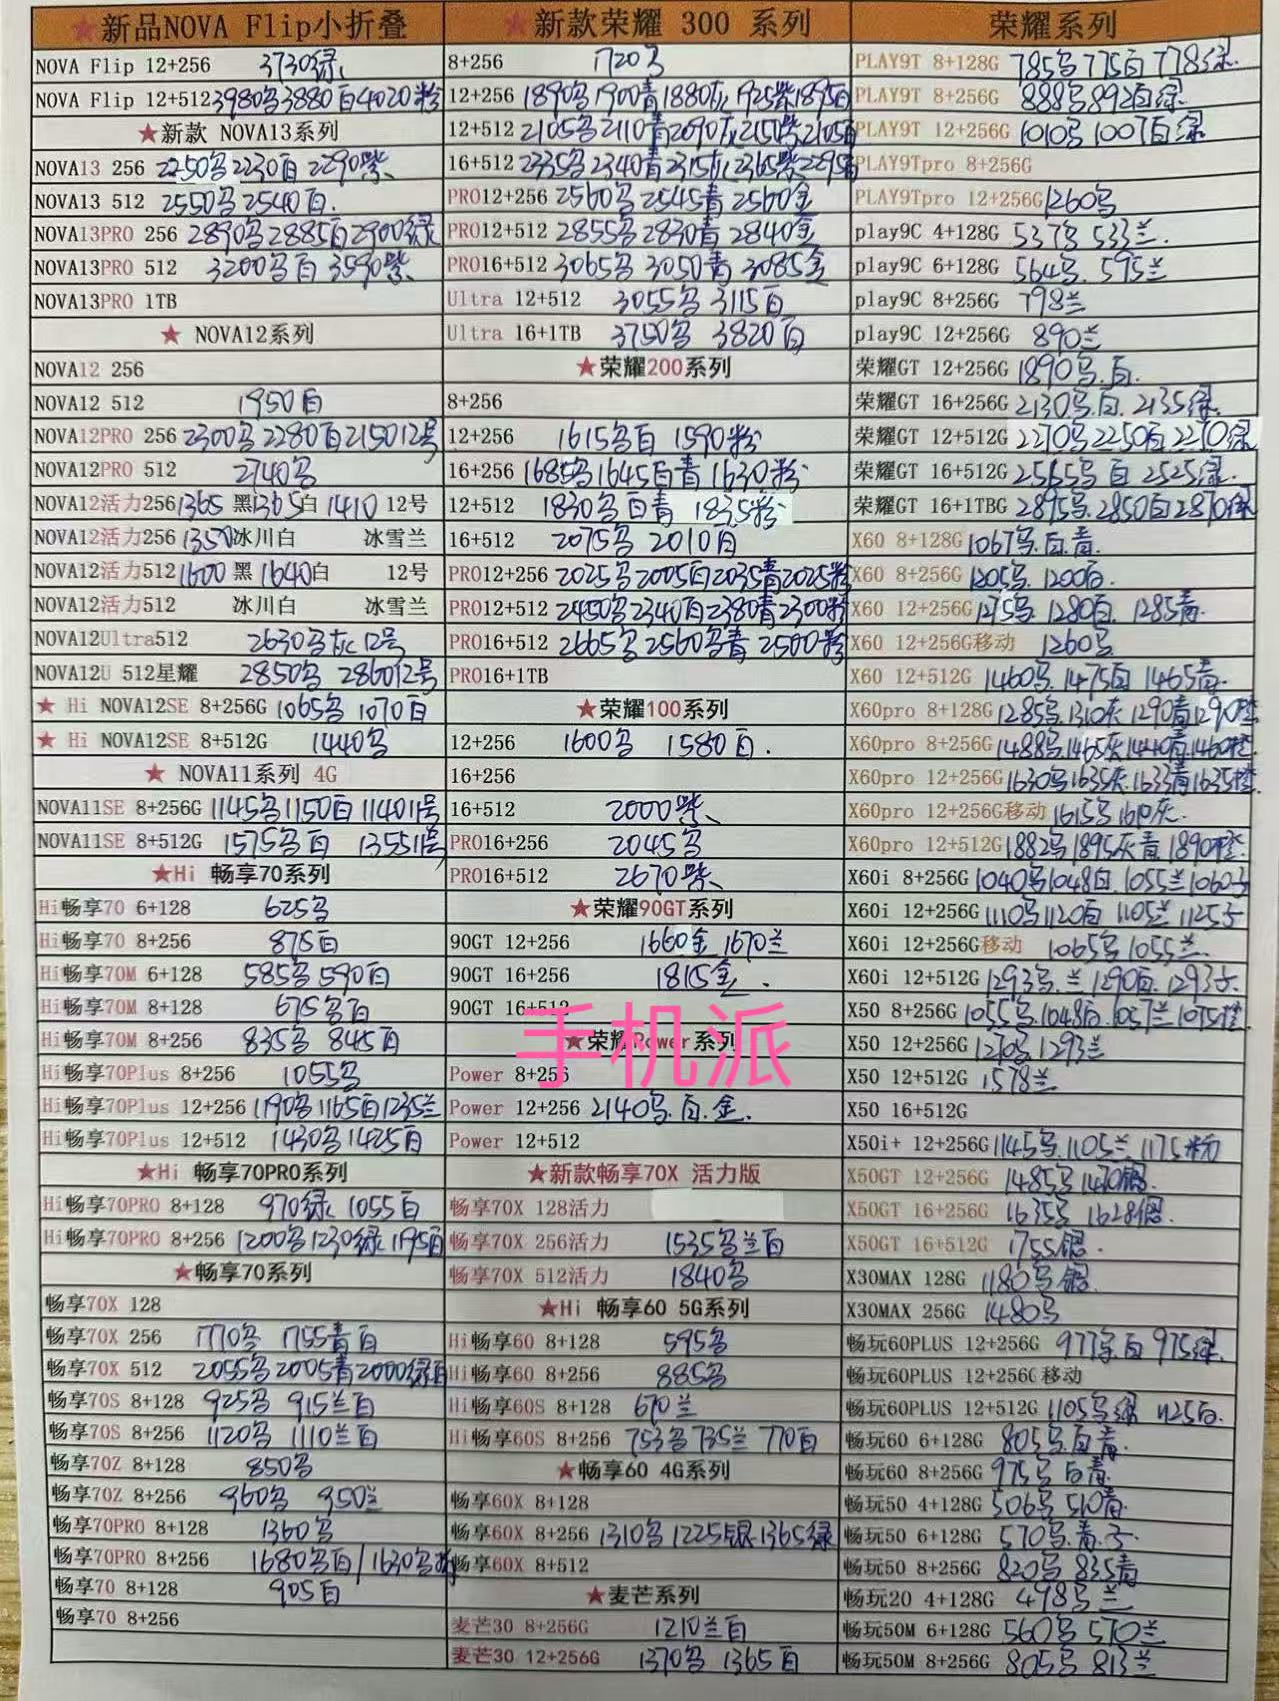 ★新品NOVA Flip小折叠
NOVA Flip 12+256 3730绿
NOVA Flip 12+512 3980乌3880白4020粉
★新款 NOVA13系列
NOVA13 256 2250乌2230白2290紫
NOVA13 512 2550乌2540白.
NOVA13PRO 256 2890乌2885白2900绿
NOVA13PRO 512 3200乌白 3590紫
NOVA13PRO 1TB
★ NOVA12系列
NOVA12 256
NOVA12 512 1950白
NOVA12PRO 256 2300乌2280白215012号
NOVA12PRO 512 2740乌
NOVA12活力256 1365 黑1365白 1410 12号
NOVA12活力256 1350冰川白 冰雪兰
NOVA12活力512 1600 黑 1640白 12号
NOVA12活力512 冰川白 冰雪兰
NOVA12Ultra512 2630乌灰12号
NOVA12U 512星耀 2850乌 286012号
★ Hi NOVA12SE 8+256G 1065乌 1070白
★ Hi NOVA12SE 8+512G 1440乌
★ NOVA11系列 4G
NOVA11SE 8+256G 1145乌1150白 114011号
NOVA11SE 8+512G 1575乌白 135511号
★Hi 畅享70系列
Hi畅享70 6+128 625乌
Hi畅享70 8+256 875白
Hi畅享70M 6+128 585乌590白
Hi畅享70M 8+128 675乌白
Hi畅享70M 8+256 835乌 845白
Hi畅享70Plus 8+256 1055乌
Hi畅享70Plus 12+256 1190乌1165白1235兰
Hi畅享70Plus 12+512 1430乌1425白
★Hi 畅享70PRO系列
Hi畅享70PRO 8+128 970绿 1055白
Hi畅享70PRO 8+256 1200乌1230绿 1195白
★畅享70系列
畅享70X 128
畅享70X 256 1770乌 1755青白
畅享70X 512 2055乌2005青2000绿白
畅享70S 8+128 925乌 915兰白
畅享70S 8+256 1120乌 1110兰白
畅享70Z 8+128 850乌
畅享70Z 8+256 960乌 950兰
畅享70PRO 8+128 1360乌
畅享70PRO 8+256 1680乌白/1630乌
畅享70 8+128 905白
畅享70 8+256
★新款荣耀 300 系列
8+256 1720乌
12+256 1890乌1900青1880灰1925紫1895白
12+512 2105乌2110青2090灰2150紫2105白
16+512 2335乌2340青2315灰2365紫2295白
PRO12+256 2560乌2545青2560金
PRO12+512 2855乌2830青 2840金
PRO16+512 3065乌 3050青 3085金
Ultra 12+512 3055乌 3115白
Ultra 16+1TB 3750乌 3820白
★荣耀200系列
8+256
12+256 1615乌白 1590粉
16+256 1685乌1645白青1630粉
12+512 1830乌白青 1835粉
16+512 2075乌 2010白
PRO12+256 2025乌2005白2035青2025粉
PRO12+512 2450乌2340白2380青2300粉
PRO16+512 2665乌2560乌青 2500粉
PRO16+1TB
★荣耀100系列
12+256 1600乌 1580白.
16+256
16+512 2000紫
PRO16+256 2045乌
PRO16+512 2670紫
★荣耀90GT系列
90GT 12+256 1660金 1670兰
90GT 16+256 1815金.
90GT 16+512
手机派
★荣耀Power系列
Power 8+256
Power 12+256 2140乌.白.金.
Power 12+512
★新款畅享70X 活力版
畅享70X 128活力
畅享70X 256活力 1535乌兰白
畅享70X 512活力 1840乌
★Hi 畅享60 5G系列
Hi畅享60 8+128 595乌
Hi畅享60 8+256 885乌
Hi畅享60S 8+128 670兰
Hi畅享60S 8+256 753乌735兰 770白
★畅享60 4G系列
畅享60X 8+128
畅享60X 8+256 1310乌1225银1365绿
畅享60X 8+512
★麦芒系列
麦芒30 8+256G 1210兰白
麦芒30 12+256G 1370乌 1365白
荣耀系列
PLAY9T 8+128G 785乌775白778绿
PLAY9T 8+256G 888乌892白绿
PLAY9T 12+256G 1010乌1007白绿
PLAY9Tpro 8+256G
PLAY9Tpro 12+256G 1260乌
play9C 4+128G 537乌 533兰.
play9C 6+128G 564乌. 595兰
play9C 8+256G 798兰
play9C 12+256G 890兰
荣耀GT 12+256G 1890乌.白.
荣耀GT 16+256G 2130乌.白. 2135绿.
荣耀GT 12+512G 2270乌2250白2270绿
荣耀GT 16+512G 2565乌 白 2525绿.
荣耀GT 16+1TBG 2895乌.2850白2870绿
X60 8+128G 1067乌.白.青.
X60 8+256G 1205乌. 1200白.
X60 12+256G 1275乌. 1280白. 1285青.
X60 12+256G移动 1260乌
X60 12+512G 1460乌.1475白1465青.
X60pro 8+128G 1285乌.1310灰1290青1290橙
X60pro 8+256G 1488乌.1465灰1440青.1460橙.
X60pro 12+256G 1630乌1635灰.1633青1635橙
X60pro 12+256G移动 1615乌1610灰.
X60pro 12+512G 1882乌1895灰青1890橙.
X60i 8+256G 1040乌1048白.1055兰1060
X60i 12+256G 1110乌1120白 1105兰1125
X60i 12+256G移动 1065乌1055兰.
X60i 12+512G 1293乌.兰1290白.1293
X50 8+256G 1055乌.1048白.1057兰1075橙
X50 12+256G 1270乌1293兰
X50 12+512G 1578兰
X50 16+512G
X50i+ 12+256G 1145乌.1105兰.1175粉
X50GT 12+256G 1485乌1470银.
X50GT 16+256G 1635乌 1628银.
X50GT 16+512G 1755银.
X30MAX 128G 1180乌银.
X30MAX 256G 1480乌
畅玩60PLUS 12+256G 977乌白975绿.
畅玩60PLUS 12+256G移动
畅玩60PLUS 12+512G 1105乌绿 1125白.
畅玩60 6+128G 805乌.白青.
畅玩60 8+256G 975乌白青.
畅玩50 4+128G 506乌 510青.
畅玩50 6+128G 570乌.青.
畅玩50 8+256G 820乌 835青
畅玩20 4+128G 498乌兰
畅玩50M 6+128G 560乌 570兰
畅玩50M 8+256G 805乌 813兰